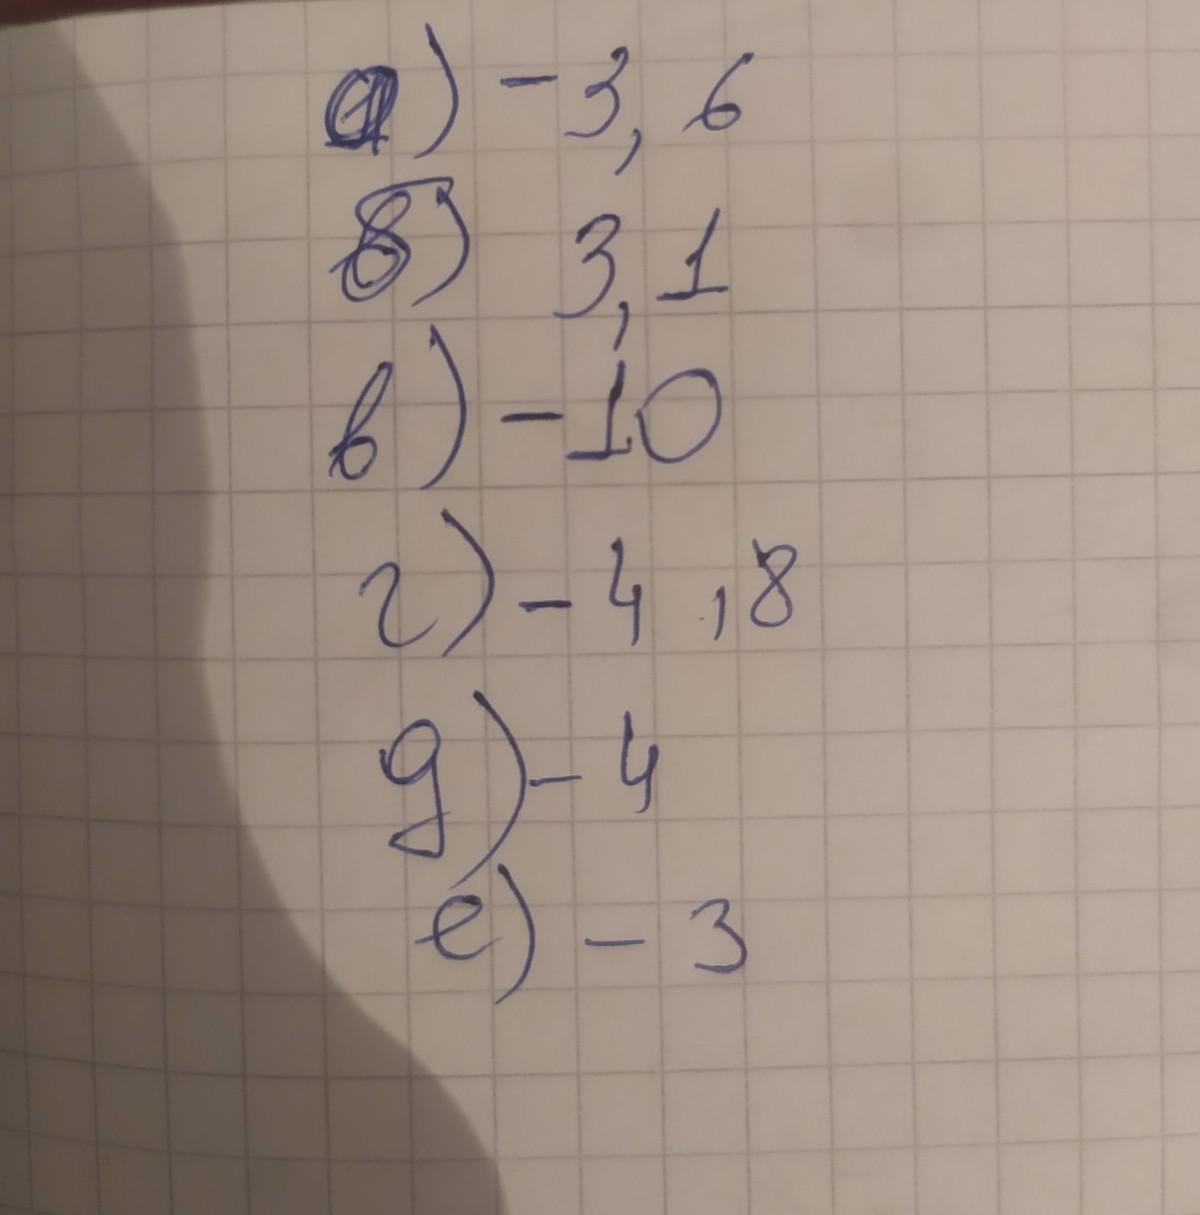 а) -3,6
б) 3,1
в) -10
г) -4,8
д) -4
е) -3